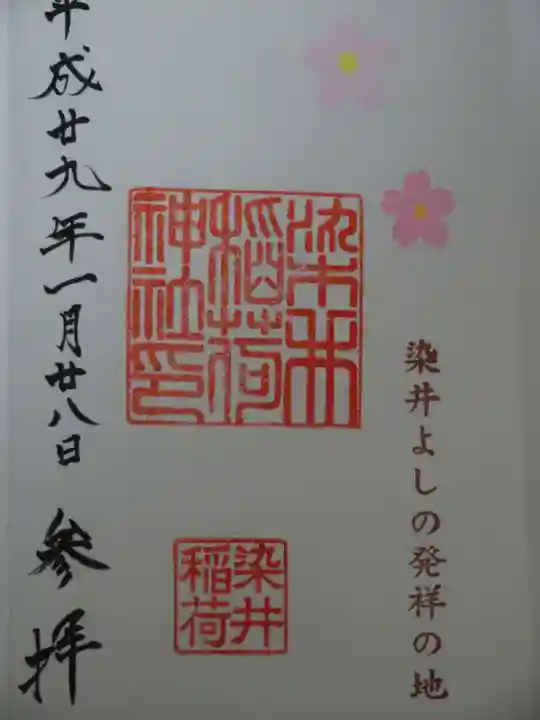 染井よしの発祥の地
染井
稲荷
神社印
染井
稲荷
平成廿九年一月廿八日 参拝